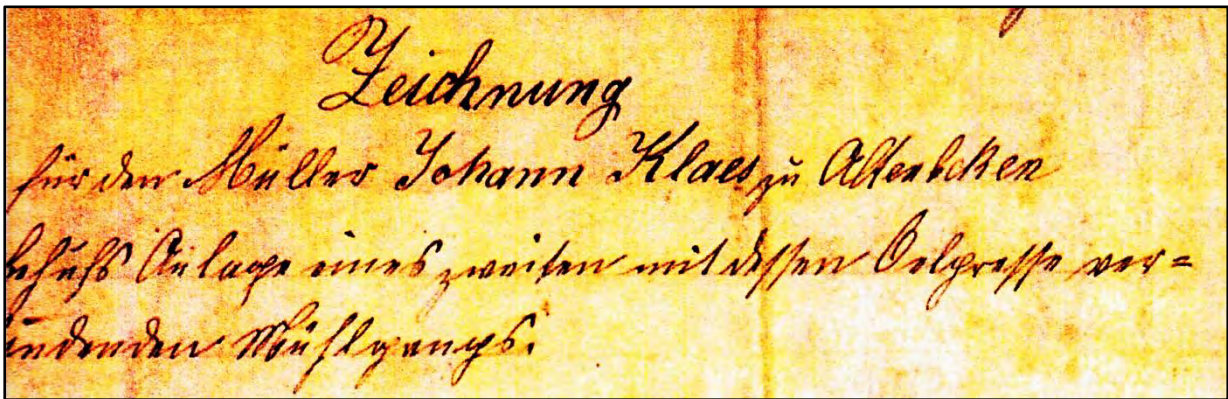 Zeichnung
für den Müller Johann Klaes zu Altenbeken
behufs Anlage eines zweiten mit dessen Oelpresse ver=
indenden Mühlgangs.